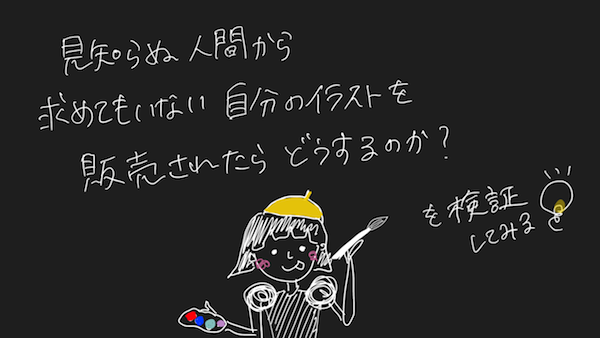 見知らぬ人間から
求めてもいない自分のイラストを
販売されたらどうするのか?
を検証
してみる